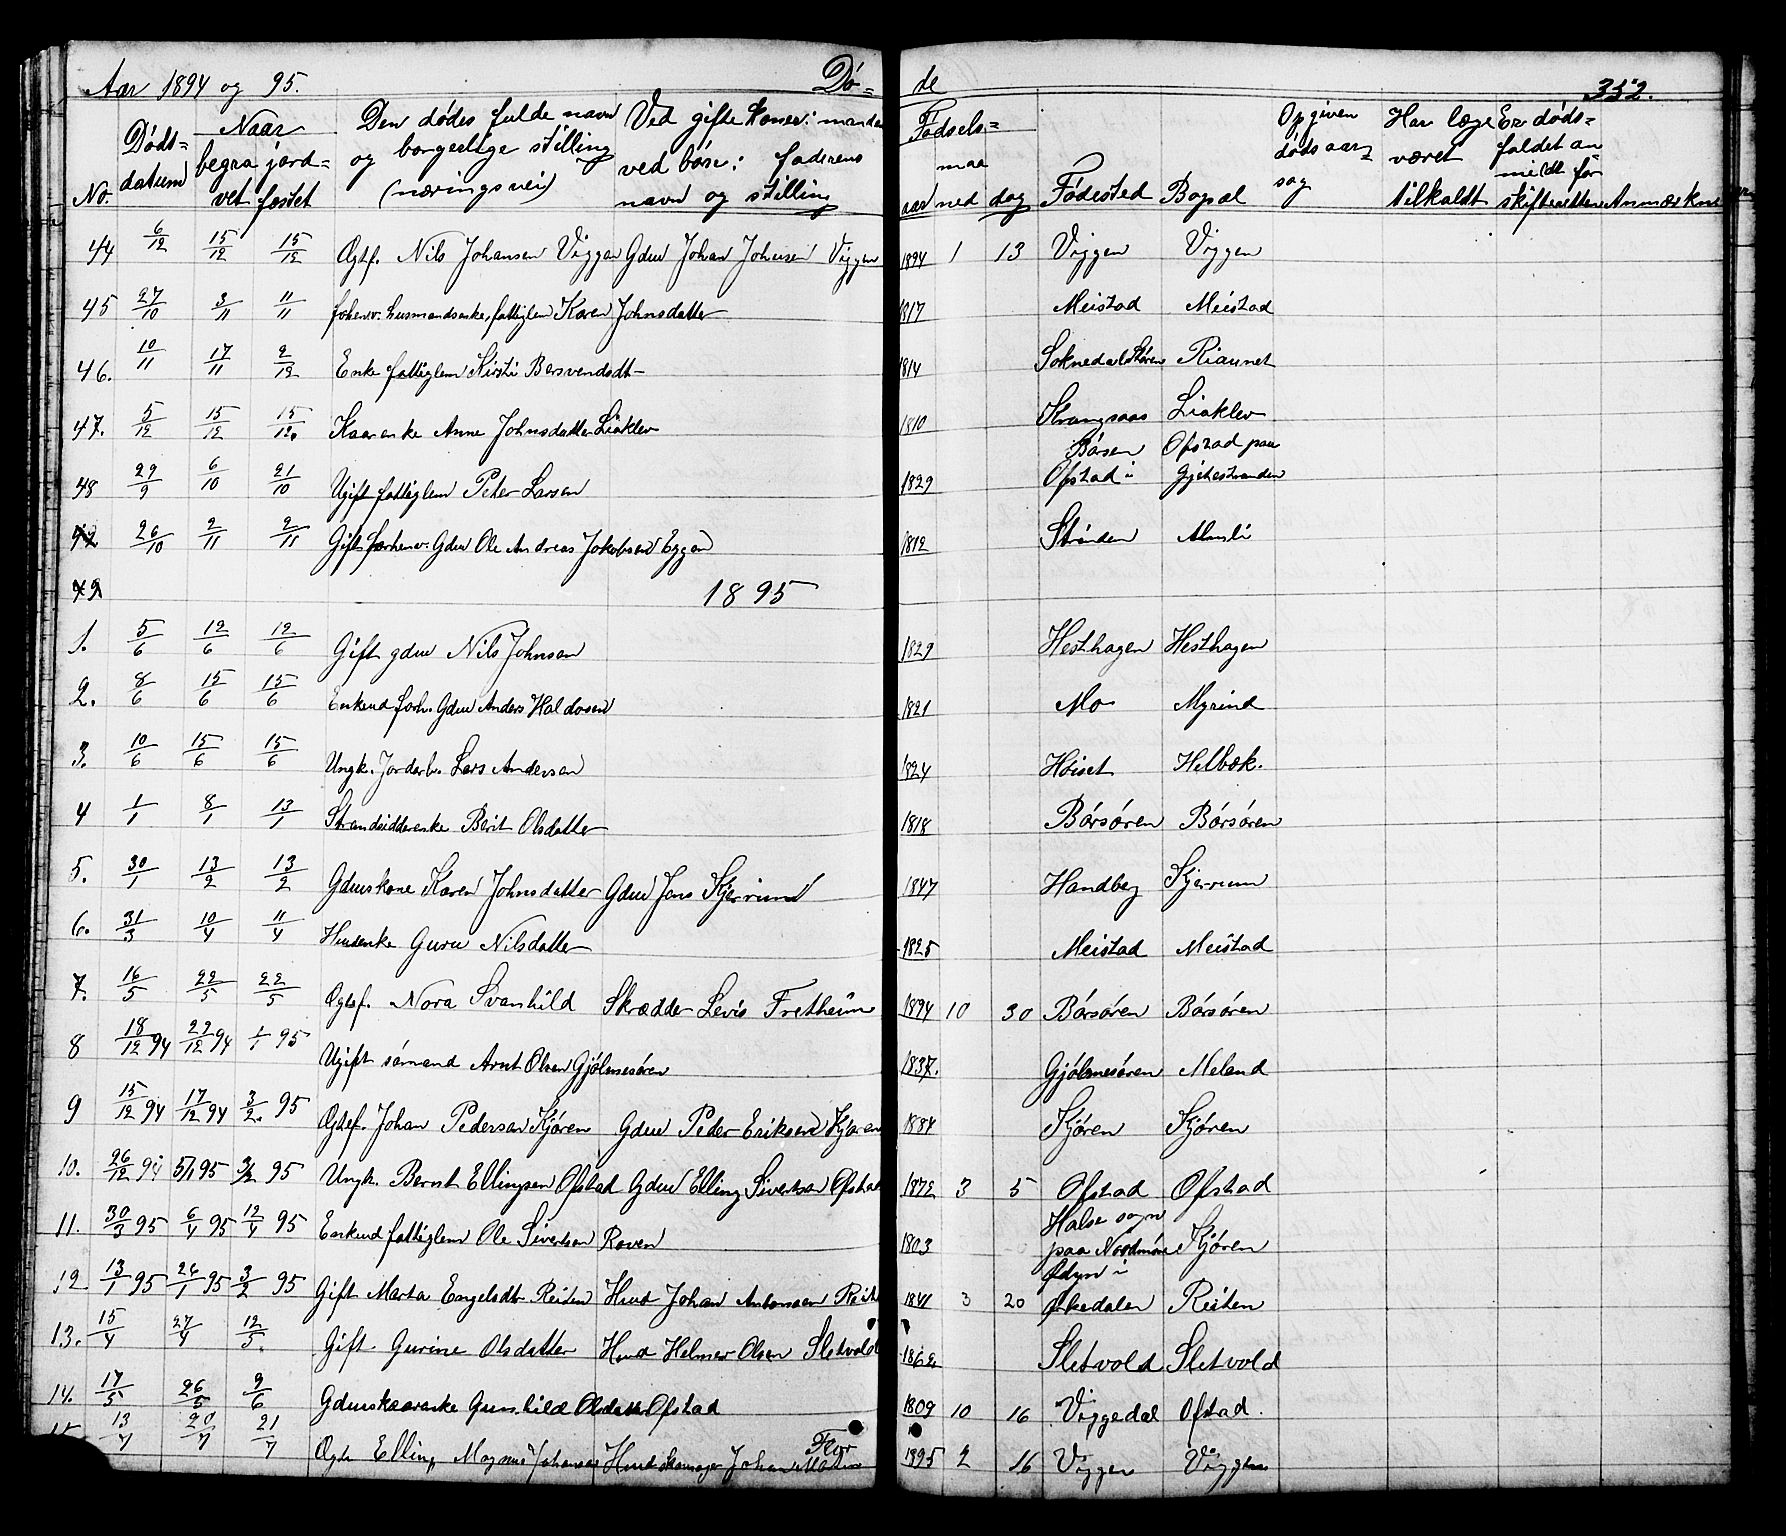 Aar 1894 og 95. Dø= de 352.
No. Døds-datum Naar begravet jordfæstet Den dødes fulde navn og borgerlige stilling (næringsvei) Ved gifte koner: mandens ved børn: faderens navn og stilling Fødsels= aar maaned dag Fødested Bopæl Opgiven dødsaarsag Har læge været tilkaldt Er døds-faldet anmeldt for skifteretten
44 6/12 15/12 15/12 Ogtf. Nils Johansen Viggen Gdm Johan Johnsen Viggen 1894 1 13 Viggen Viggen
45 27/10 3/11 11/11 forhenv. husmandsenke, fattiglem Karen Johnsdatter 1817 Meistad Meistad
46. 10/11 17/11 2/12 Enke fattiglem Kirsti Bersvendsdt 1814 Soknedal Støren Riaunet
47. 5/12 15/12 15/12. Kaarenke Anne Johnsdatter Liaklev 1810 Krangsaas Liaklev
48 29/9 6/10 21/10 Ugift fattiglem Peter Larsen 1829 Børsen Ofstad i Ofstad paa Gjetestranden
26/10 2/11 2/11 Gift forhenv. Gdm Ole Andreas Jakobsen Eggen 1812 Strinden Almli
49
1895
1. 5/6 12/6 12/6 Gift gdm Nils Johnsen 1829 Hesthagen Hesthagen
2. 8/6 15/6 15/6 Enkemd forh. Gdm Anders Haldosen 1821 Mo Myrind
3. 10/6 15/6 15/6 Ungk. Jordarb. Lars Andersen 1824 Høiset Helbæk.
4 1/1 8/1 13/1 Strandsidderenke Berit Olsdatter 1818 Børsøren Børsøren
5. 30/1 13/2 13/2 Gdmskone Karen Johnsdatter Gdm Jens Skjerrum 1847 Handberg Skjerrum
6. 31/3 10/4 11/4 Husenke Guru Nilsdatter 1825 Meistad Meistad
7. 16/5 22/5 22/5 Ogtef. Nora Svanhild Skrædder Levis Fretheim 1894 10 30 Børsøren Børsøren
8 18/12 94 22/12 94 1/1 95 Ugift sømand Arnt Olsen Gjølmesøren 1837. Gjølmesøren Meland
9 15/12 94 17/12 94 3/2. 95 Ogtef. Johan Pedersen Kjøren Gdm Peder Eriksen Kjøren 1884 Kjøren Kjøren
10. 26/12 94 5/1 95 3/2 95 Ungk. Bernt Ellingsen Ofstad Gdm Elling Sivertsen Ofstad 1872 3 5 Ofstad Ofstad
11. 30/3 95 6/4 95 12/4 95 Enkemd fattiglem Ole Sivertsen Raven 1803 Halse sogn paa Nordmøre Kjøren
12 13/1 95 26/1 95 3/2 95 Gift Marta Engelsdtr Reiten Hmd Johan Antonsen Reit 1841 3 20 Ødyn i Orkedalen Reiten
13. 15/4 27/4 12/5. Gift Gurine Olsdatter Hmd Helmer Olsen Sletvold 1862 Sletvold Sletvold
14. 17/5 26/5 9/6 Gdmskaarenke Gunhild Olsdatter Ofstad 1809 10 16 Viggedal Ofstad.
15 13/7 20/7 21/7 Ogte Elling Magnus Johansen Hmd skomager Johan Martin Flor 1895 2 16 Viggen Viggen